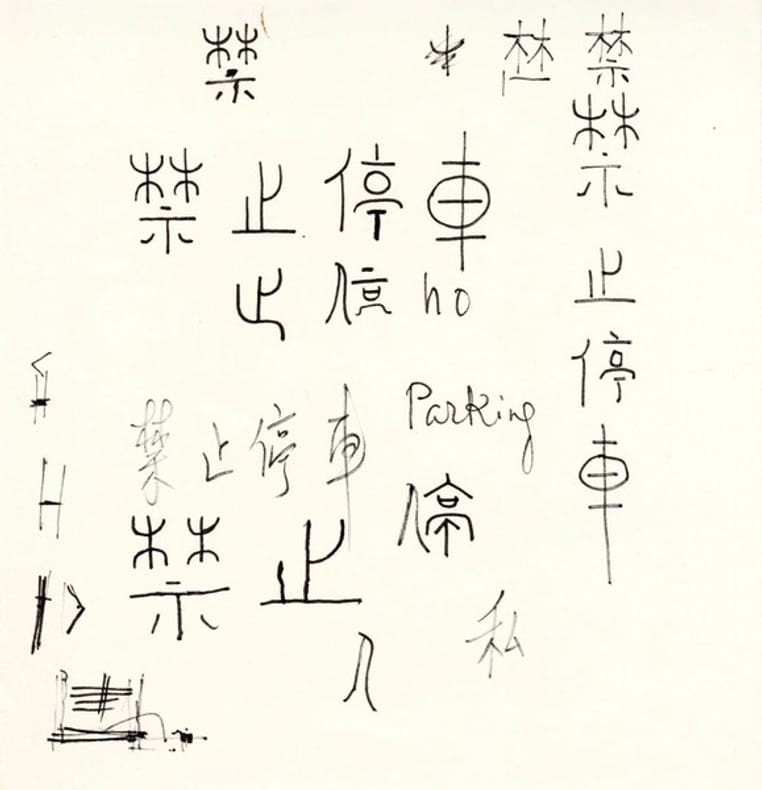 禁
禁
禁止停車
禁止停車
止停 no
Parking
禁止停車
停
禁止
私
人